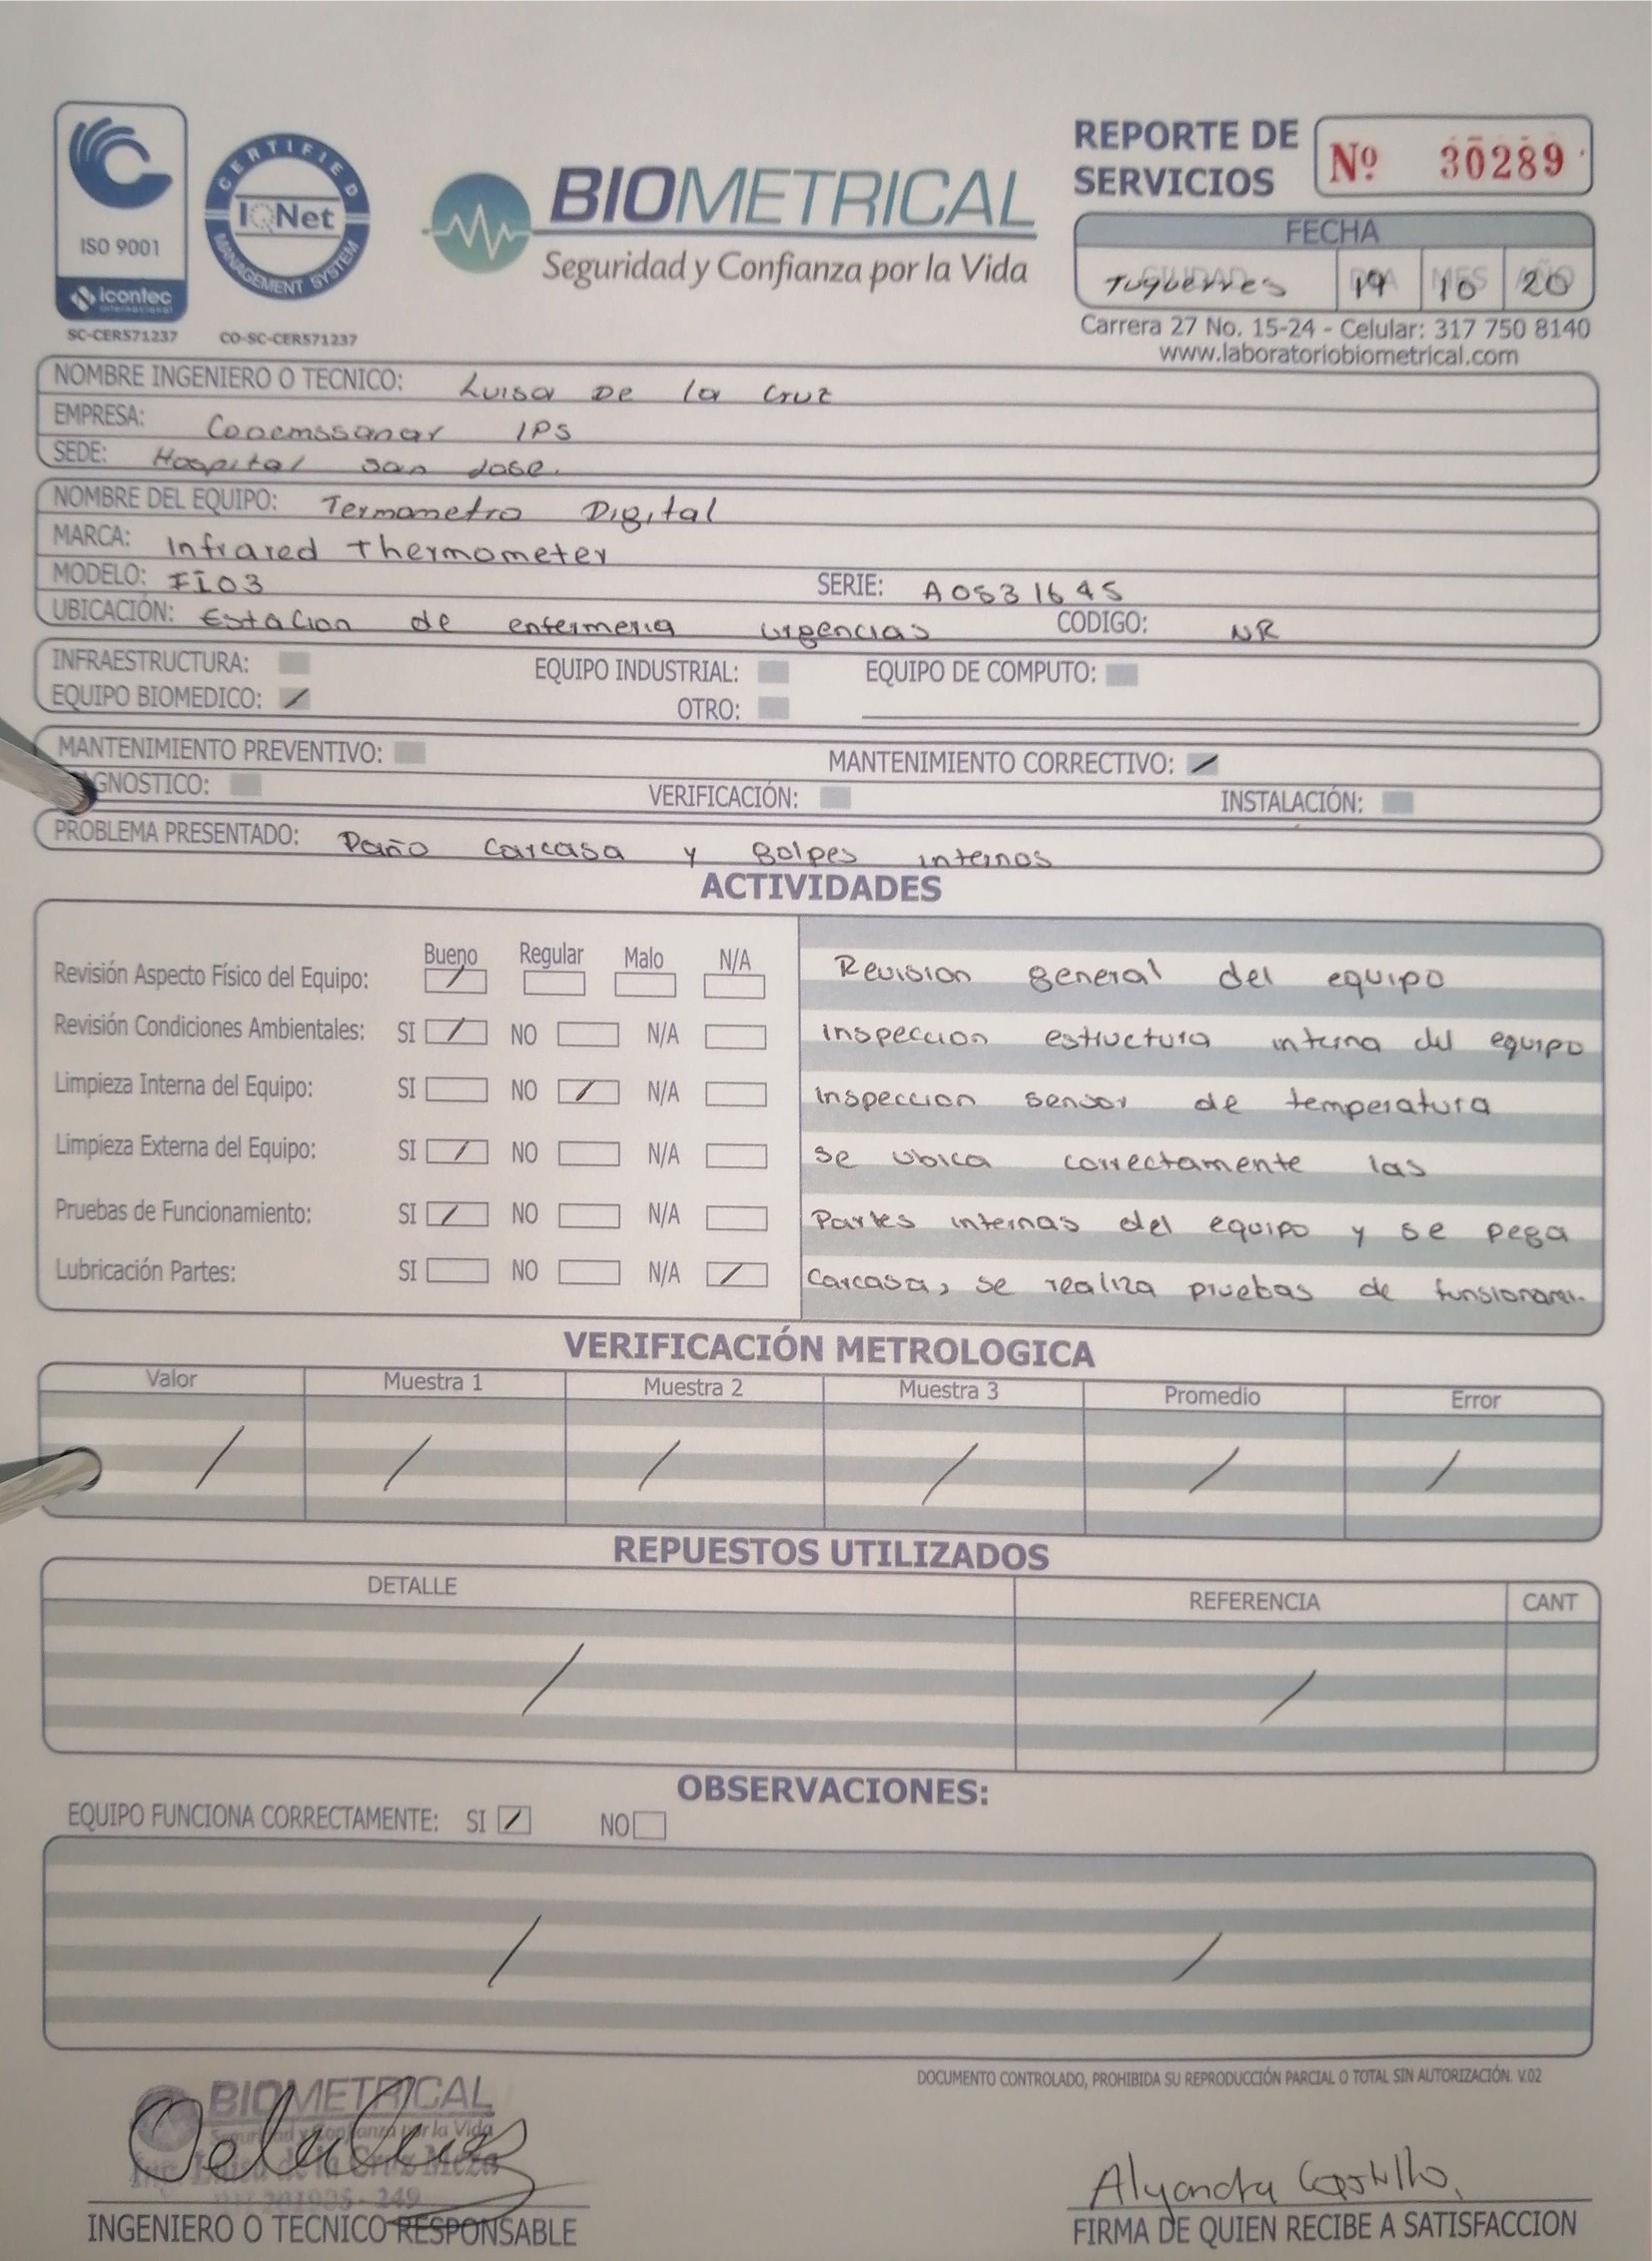 REPORTE DE SERVICIOS Nº 30289
ISO 9001
icontec
internacional
SC-CER571237
CERTIFIED
IQNet
MANAGEMENT SYSTEM
CO-SC-CER571237
BIOMETRICAL
Seguridad y Confianza por la Vida
FECHA
CIUDAD DIA MES AÑO
Tuquerres 19 10 20
Carrera 27 No. 15-24 - Celular: 317 750 8140
www.laboratoriobiometrical.com
NOMBRE INGENIERO O TECNICO: Luisa De la Cruz
EMPRESA: Cooemssanar IPS
SEDE: Hospital san Jose.
NOMBRE DEL EQUIPO: Termometro Digital
MARCA: Infrared Thermometer
MODELO: FI03 SERIE: A0531645
UBICACIÓN: Estacion de enfermeria urgencias CODIGO: NR
INFRAESTRUCTURA: EQUIPO INDUSTRIAL: EQUIPO DE COMPUTO:
EQUIPO BIOMEDICO: / OTRO:
MANTENIMIENTO PREVENTIVO: MANTENIMIENTO CORRECTIVO: /
AGNOSTICO: VERIFICACIÓN: INSTALACIÓN:
PROBLEMA PRESENTADO: Daño Carcasa y golpes internos
ACTIVIDADES
Bueno Regular Malo N/A
Revisión Aspecto Físico del Equipo: / Revision general del equipo
Revisión Condiciones Ambientales: SI / NO N/A inspeccion estructura interna del equipo
Limpieza Interna del Equipo: SI NO / N/A inspeccion sensor de temperatura
Limpieza Externa del Equipo: SI / NO N/A se ubica correctamente las
Pruebas de Funcionamiento: SI / NO N/A Partes internas del equipo y se pega
Lubricación Partes: SI NO N/A / Carcasa, se realiza pruebas de funsionami.
VERIFICACIÓN METROLOGICA
Valor Muestra 1 Muestra 2 Muestra 3 Promedio Error
/ / / / / /
REPUESTOS UTILIZADOS
DETALLE REFERENCIA CANT
/ /
OBSERVACIONES:
EQUIPO FUNCIONA CORRECTAMENTE: SI / NO
/ /
DOCUMENTO CONTROLADO, PROHIBIDA SU REPRODUCCIÓN PARCIAL O TOTAL SIN AUTORIZACIÓN. V.02
BIOMETRICAL
Seguridad y Confianza por la Vida
Ing. Luisa de la Cruz Meza
INGENIERO O TECNICO RESPONSABLE
Alejandra Castillo.
FIRMA DE QUIEN RECIBE A SATISFACCION